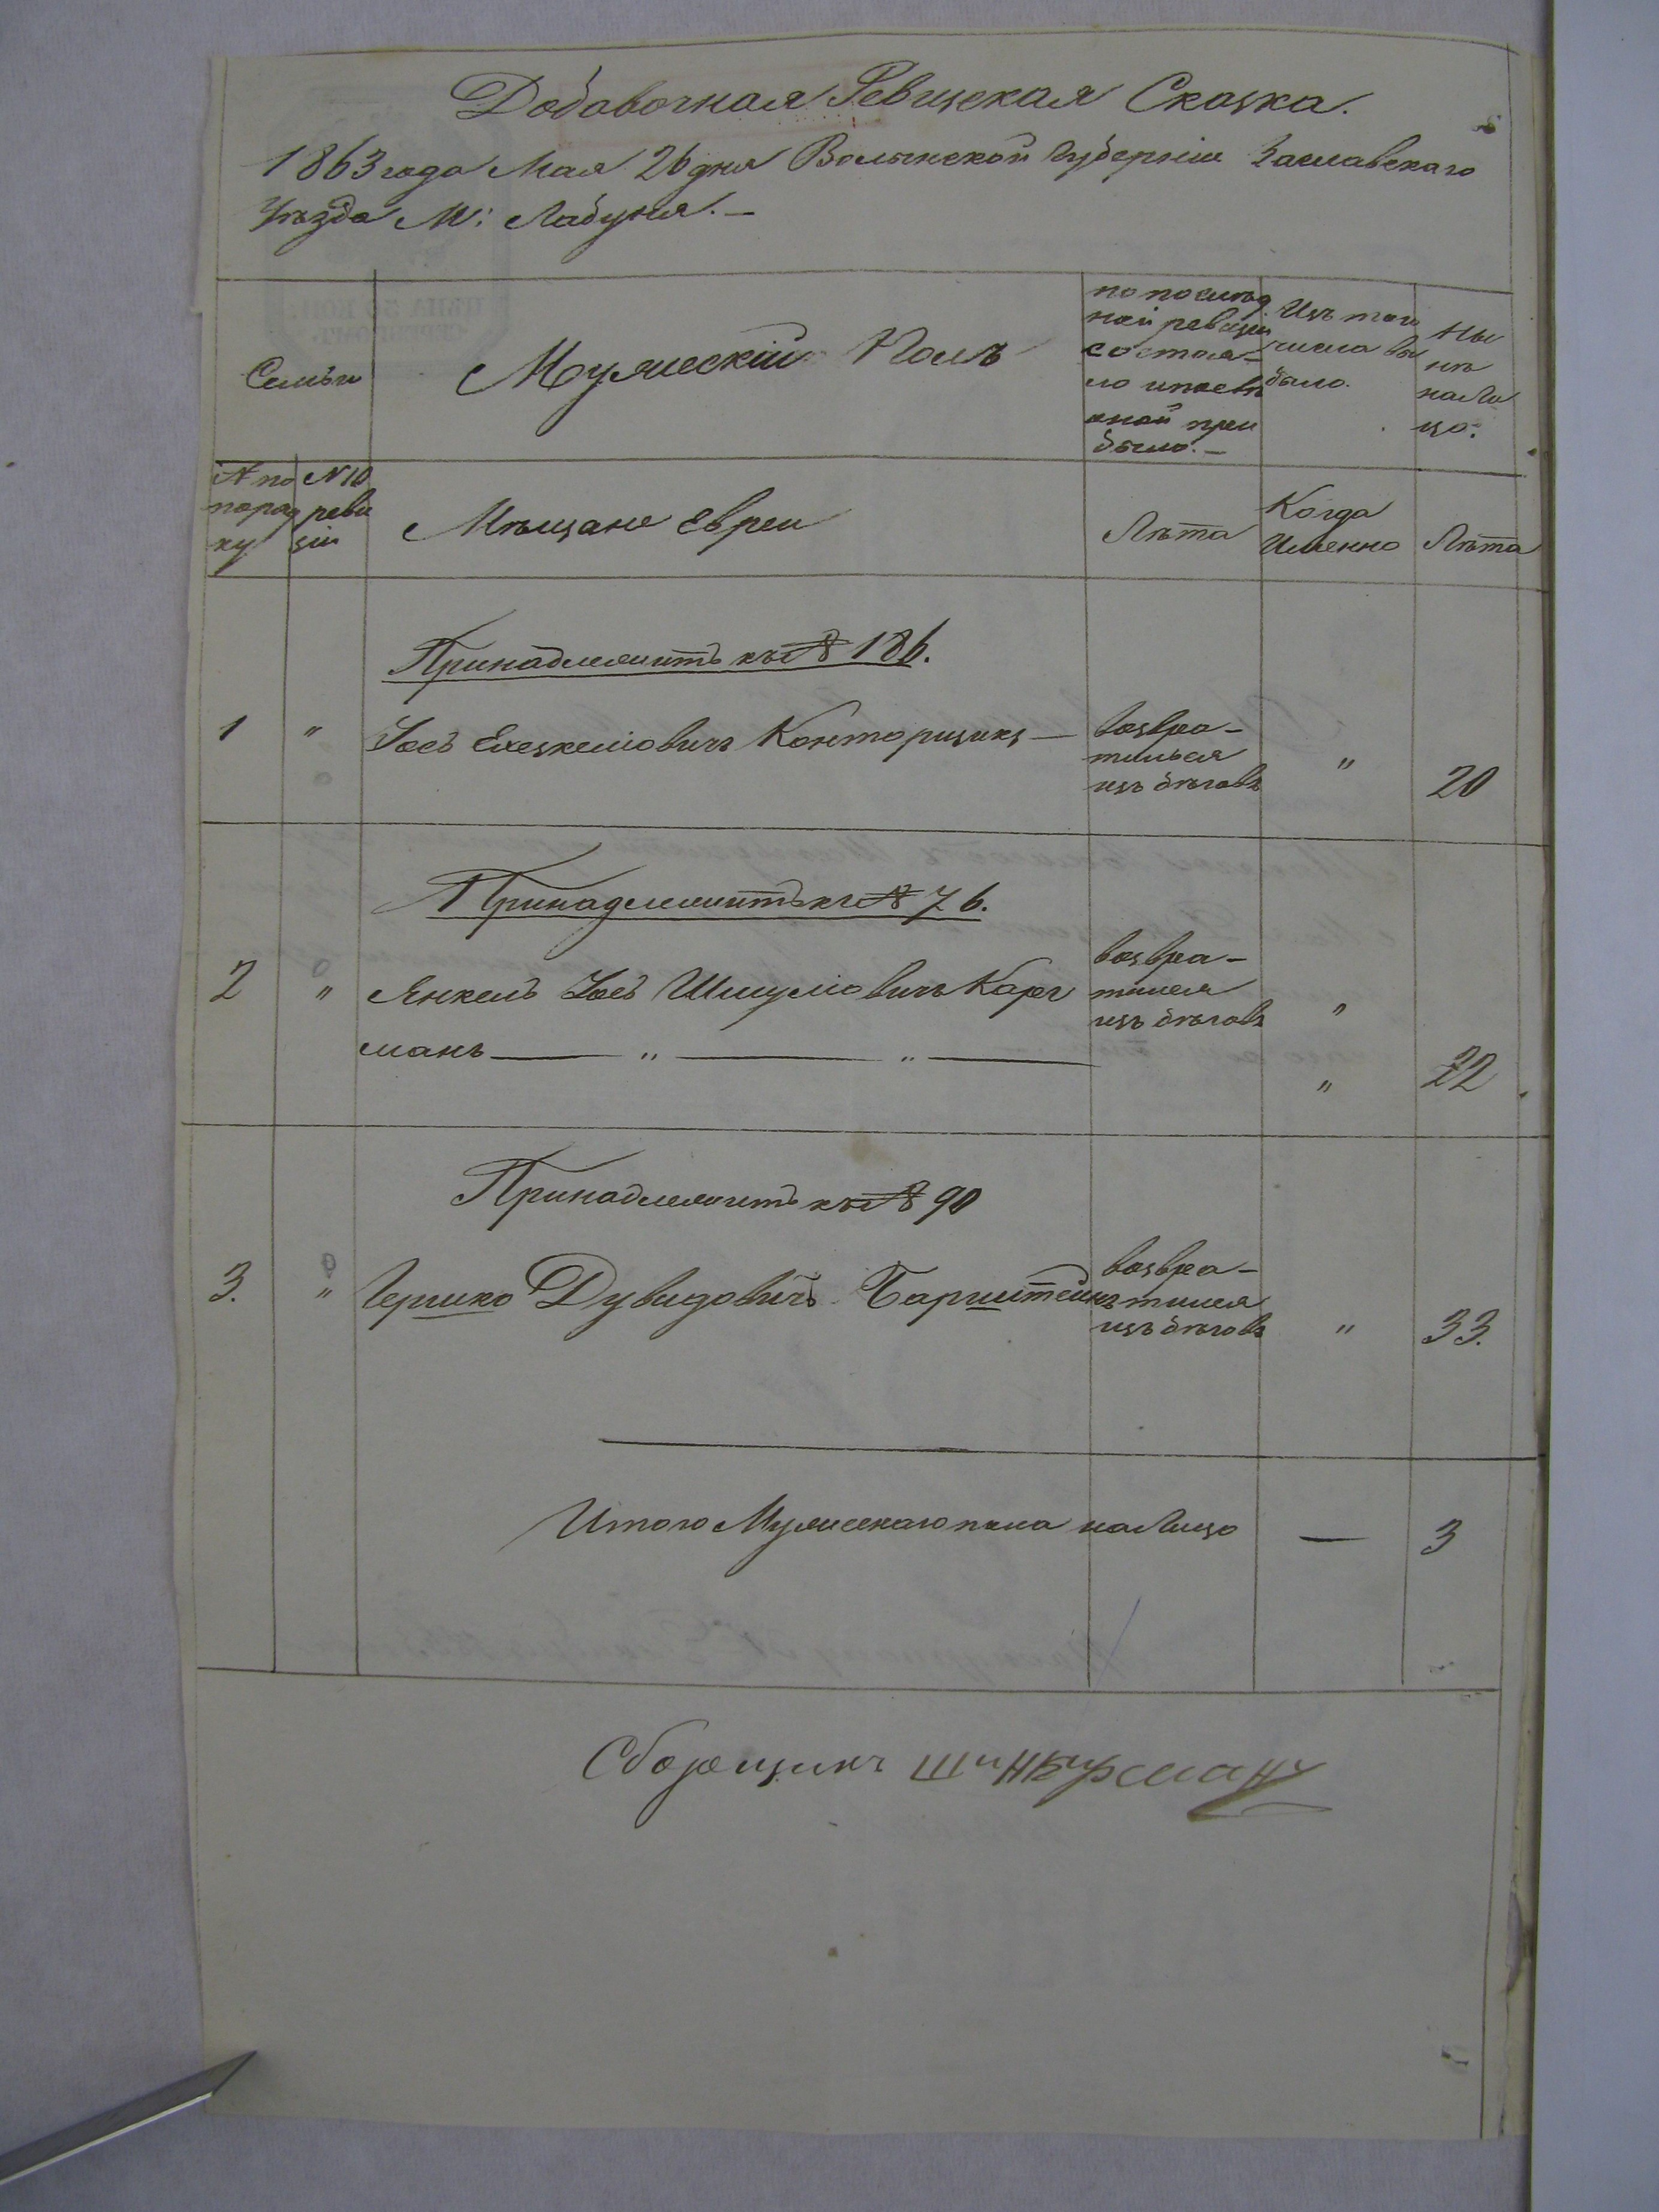 Добавочная Ревизская Сказка.
1863 года Мая 26 дня Волынской Губерніи Заславскаго
Уѣзда М: Лабуня. —
Семьи
Мужескій Полъ
по послѣд
ней ревизіи
состоя-
ло и послѣ
оной при
было. —
Изъ того
числа вы
было.
Ны
нѣ
на Ли
цо:
№ по
поряд
ку
№ 10
реви
зіи
Мѣщане Евреи
Лѣта
Когда
Именно
Лѣта
Принадлежитъ къ № 186.
1 " Іосъ Ехезкеліовичъ Конторщикъ —
возвра-
тилься
изъ бѣговъ
" 20
Принадлежитъ къ № 76.
2 " Янкель Іосъ Шмуліовичъ Карч
манъ — " — " —
возвра-
тился
изъ бѣговъ
"
" 22
Принадлежитъ къ № 90
3. " Гершко Дувидовичъ Барштейнъ
возвра-
тился
изъ бѣговъ
" 33.
Итого Мужескаго пола на Лицо — 3
Сборщикъ Шинкирманъ